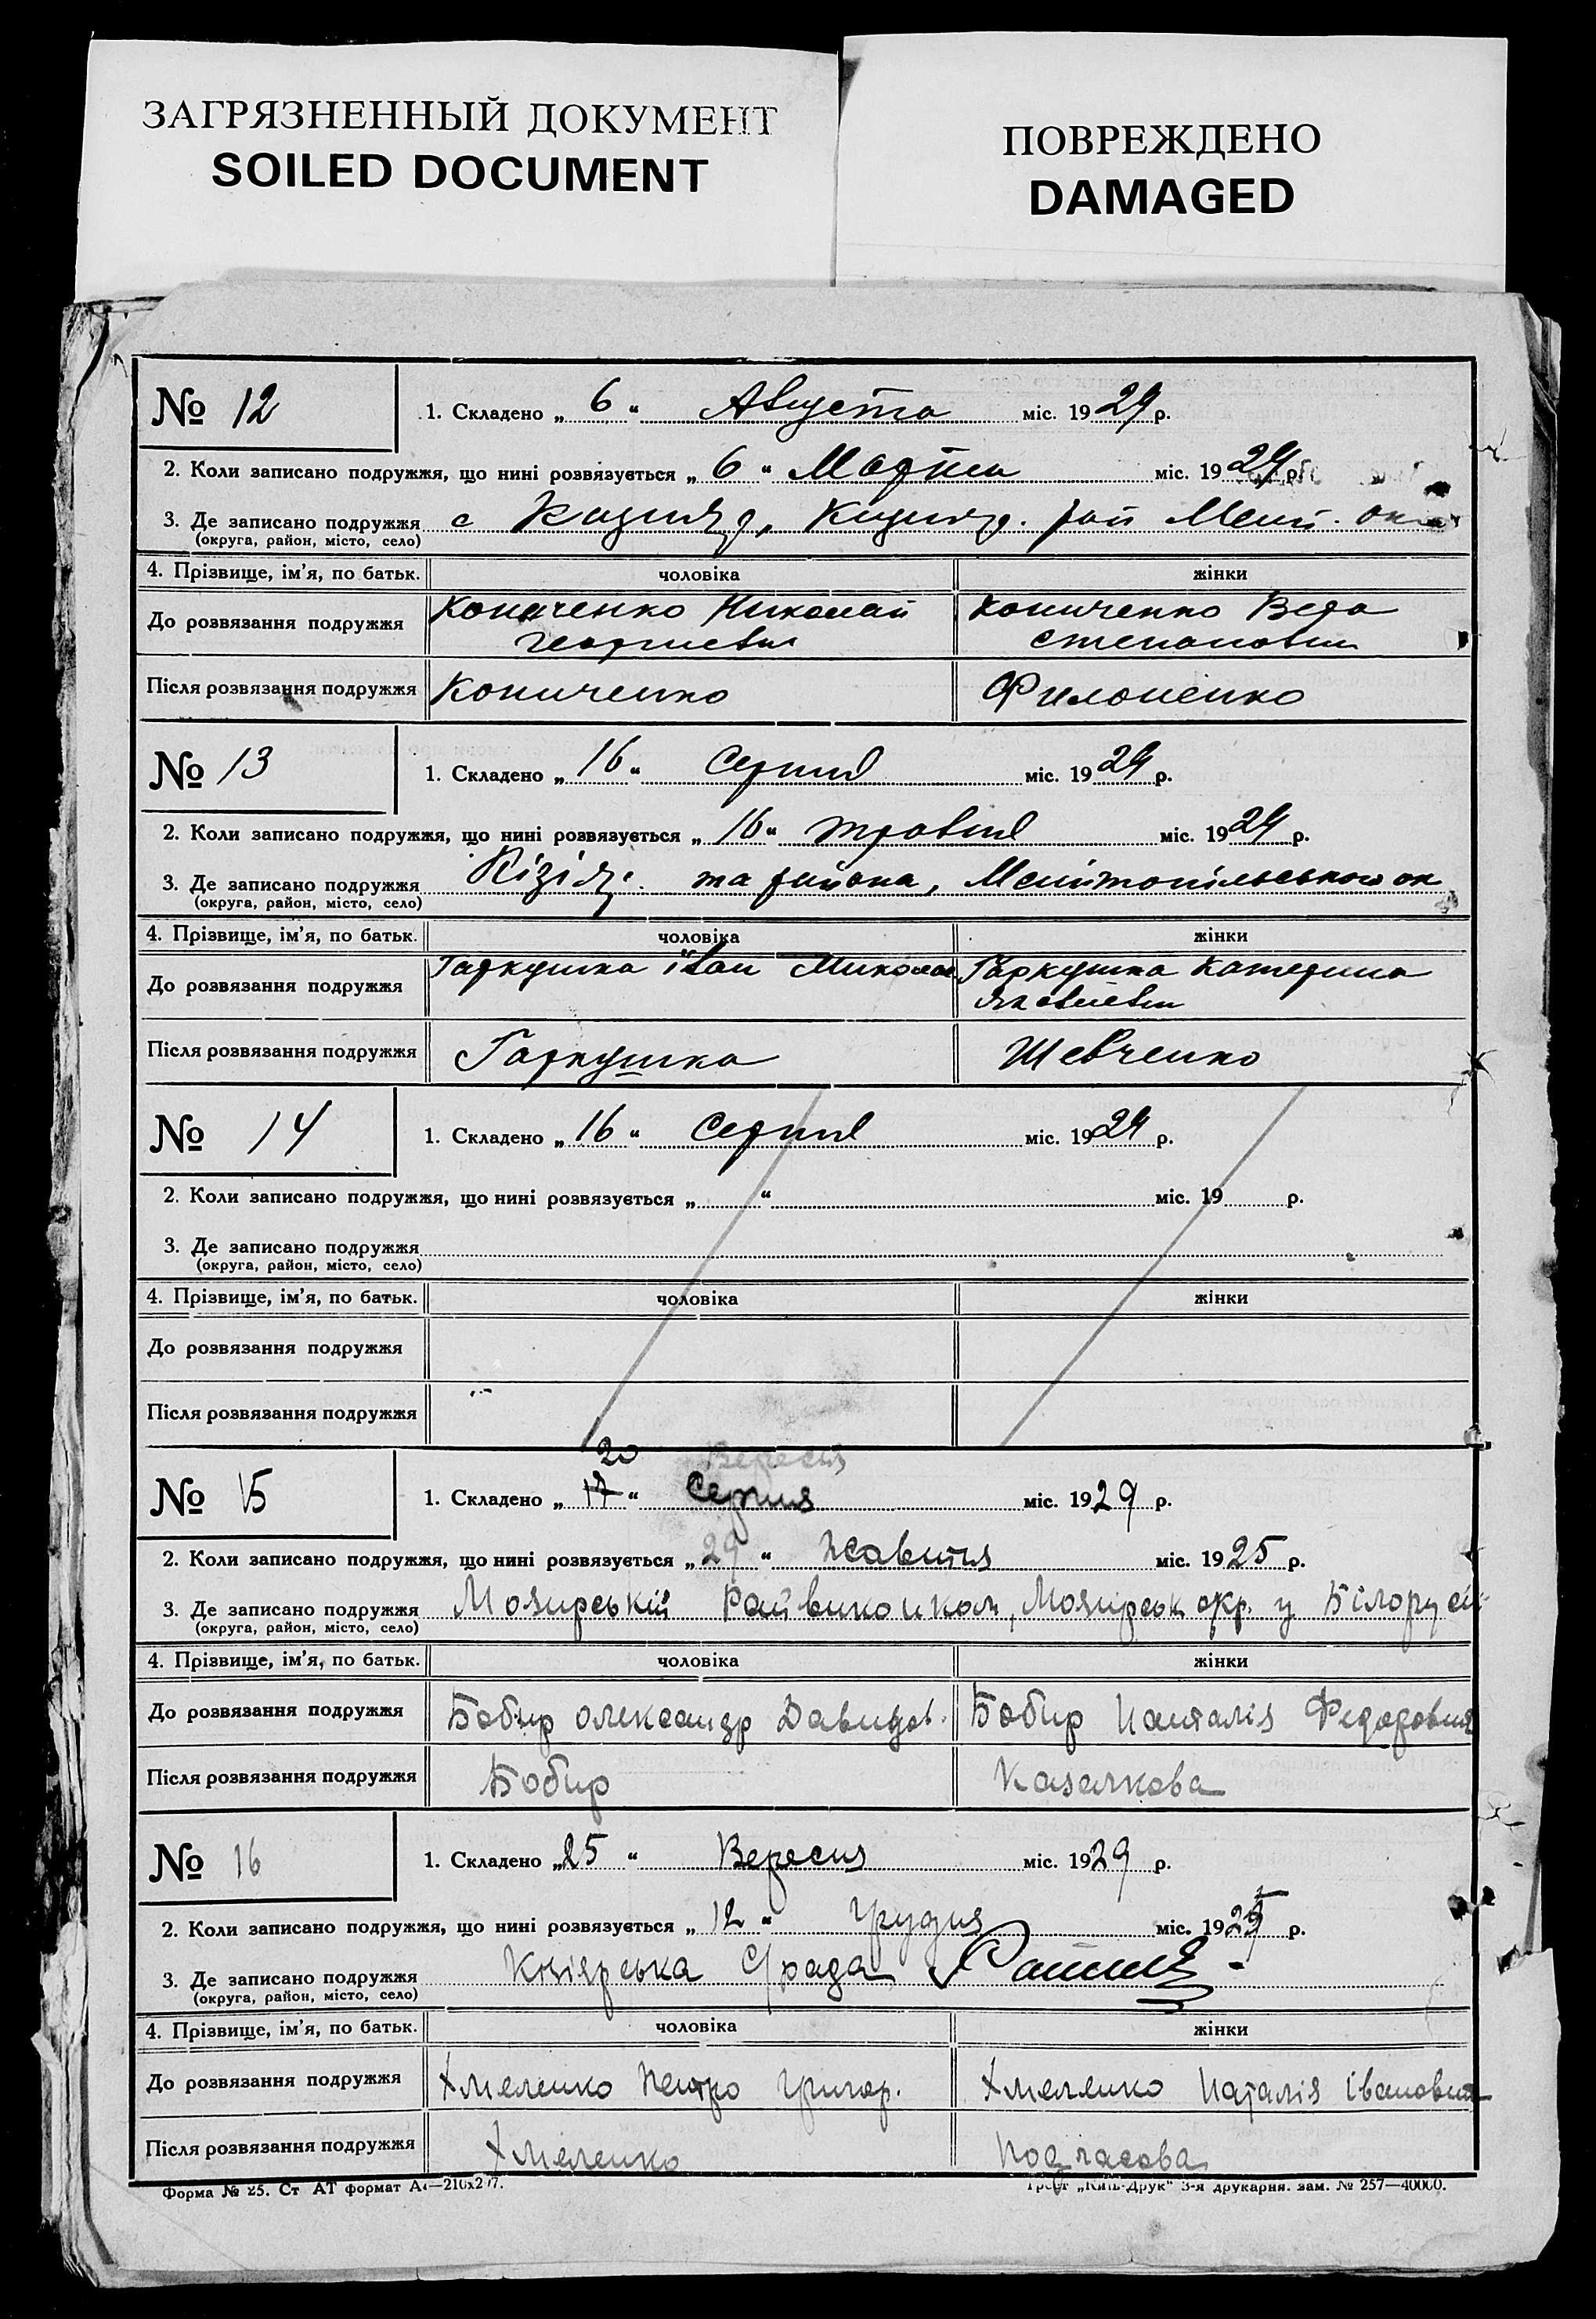 ЗАГРЯЗНЕННЫЙ ДОКУМЕНТ
SOILED DOCUMENT
ПОВРЕЖДЕНО
DAMAGED
№ 12
1. Складено „ 6 “ Августа міс. 1929 р.
2. Коли записано подружжя, що нині розвязується „ 6 “ Марта міс. 1929 р.
3. Де записано подружжя с Кизияр, Кизияр. рай Мелит. окр
(округа, район, місто, село)
4. Прізвище, ім’я, по батьк. чоловіка жінки
До розвязання подружжя Кониченко Николай Кониченко Вера
Георгиевич Степановна
Після розвязання подружжя Кониченко Филоненко
№ 13
1. Складено „ 16 “ Серпня міс. 1929 р.
2. Коли записано подружжя, що нині розвязується „ 16 “ травня міс. 1929 р.
3. Де записано подружжя Кізіяр. та района, Мелітопільського ок
(округа, район, місто, село)
4. Прізвище, ім’я, по батьк. чоловіка жінки
До розвязання подружжя Гаркушка іван Микола Гаркушка Катерина
Яковлевна
Після розвязання подружжя Гаркушка Шевченко
№ 14
1. Складено „ 16 “ Серпня міс. 1929 р.
2. Коли записано подружжя, що нині розвязується „ “ міс. 19 р.
3. Де записано подружжя
(округа, район, місто, село)
4. Прізвище, ім’я, по батьк. чоловіка жінки
До розвязання подружжя
Після розвязання подружжя
20 Вересня
№ 15
1. Складено „ 17 “ Серпня міс. 1929 р.
2. Коли записано подружжя, що нині розвязується „ 29 “ Жовтня міс. 1925 р.
3. Де записано подружжя Мозирській Райвиконком, Мозирськ окр. у Білорусії
(округа, район, місто, село)
4. Прізвище, ім’я, по батьк. чоловіка жінки
До розвязання подружжя Бобир Олександр Давидов. Бобир Наталія Федоровна
Після розвязання подружжя Бобир Казалкова
№ 16
1. Складено „ 25 “ Вересня міс. 1929 р.
2. Коли записано подружжя, що нині розвязується „ 12 “ Грудня міс. 192 р.
3. Де записано подружжя Кізіярська С/рада
(округа, район, місто, село)
4. Прізвище, ім’я, по батьк. чоловіка жінки
До розвязання подружжя Хмеленко Петро Григор. Хмеленко Наталія Івановна
Після розвязання подружжя Хмеленко
Форма № 25. Ст АТ формат А4—210х297. Трест „Київ-Друк“ 3-я друкарня. зам. № 257—40000.